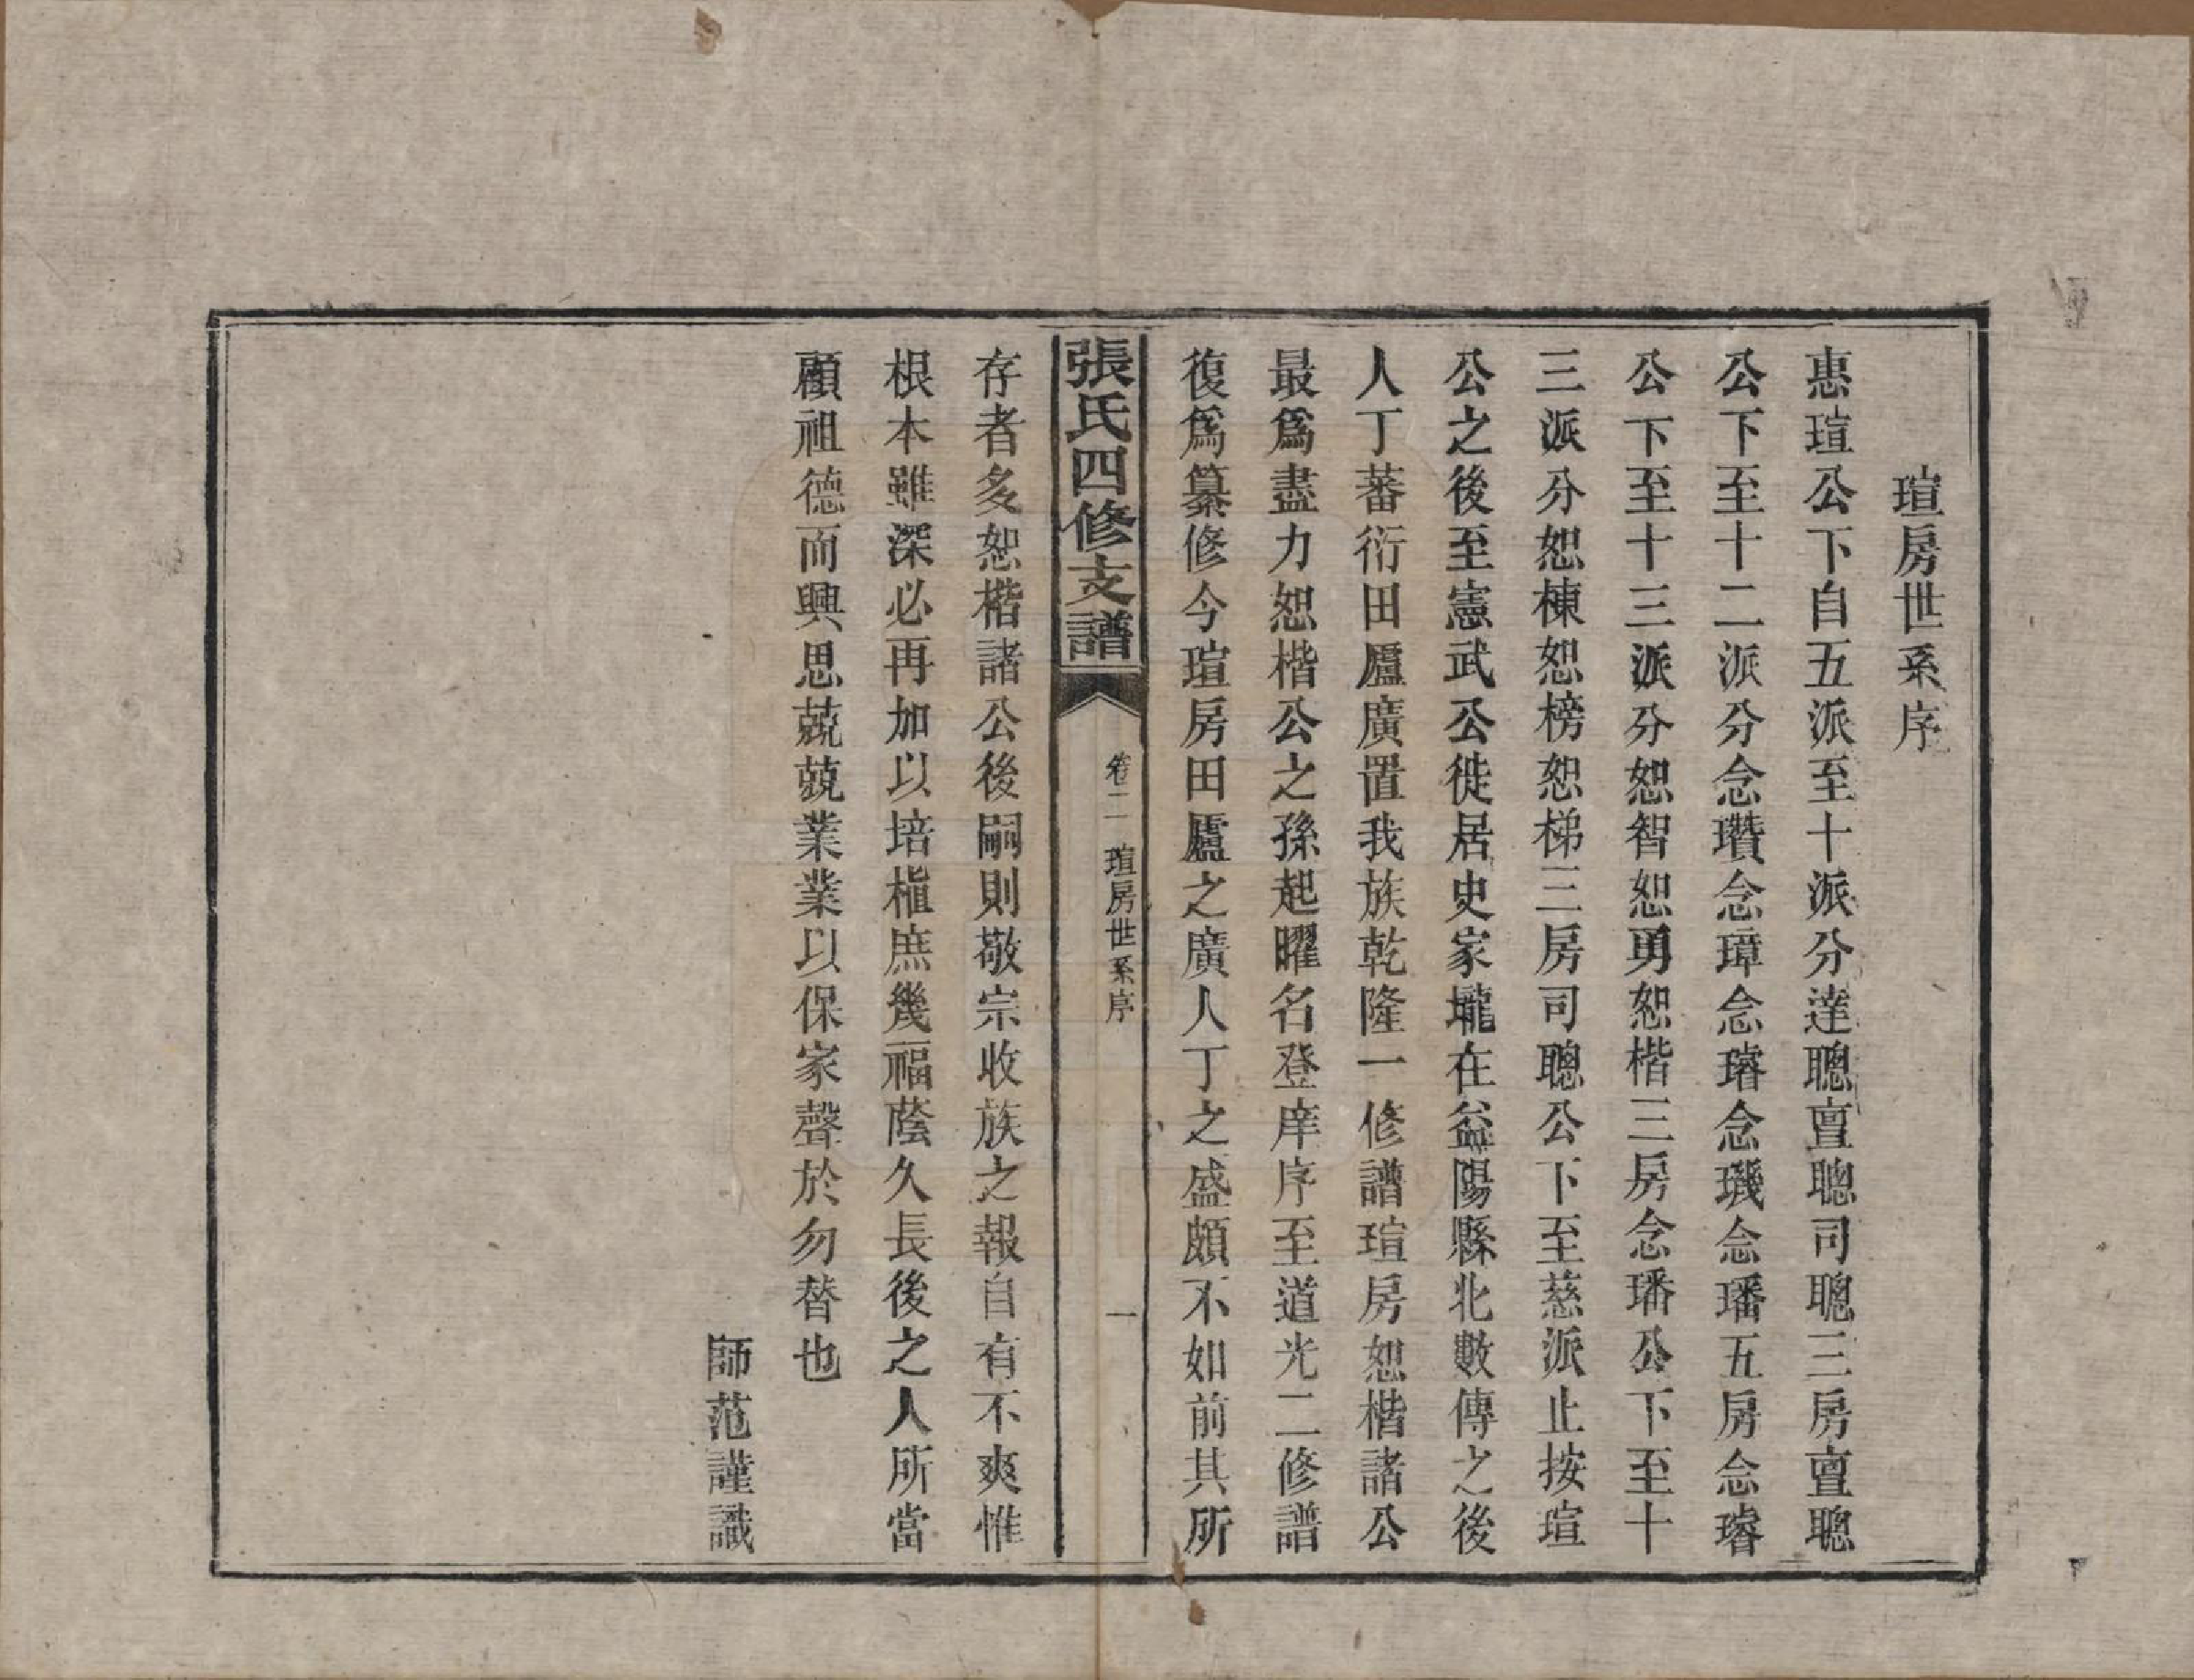 瑄房世系序
惠瑄公下自五派至十派分達聰亶聰司聰三房亶聰
公下至十二派分念瓚念璋念璿念璣念璠五房念璿
公下至十三派分恕智恕勇恕楷三房念璠公下至十
三派分恕棟恕榜恕梯三房司聰公下至慈派止按瑄
公之後至憲武公徙居史家壠在益陽縣北數傳之後
人丁蕃衍田廬廣置我族乾隆一修譜瑄房恕楷諸公
最爲盡力恕楷公之孫起曜名登庠序至道光二修譜
復爲纂修今瑄房田廬之廣人丁之盛頗不如前其所
張氏四修支譜
卷二 瑄房世系序
一
存者多恕楷諸公後嗣則敬宗收族之報自有不爽惟
根本雖深必再加以培植庶幾福蔭久長後之人所當
顧祖德而興思兢兢業業以保家聲於勿替也
師范謹識